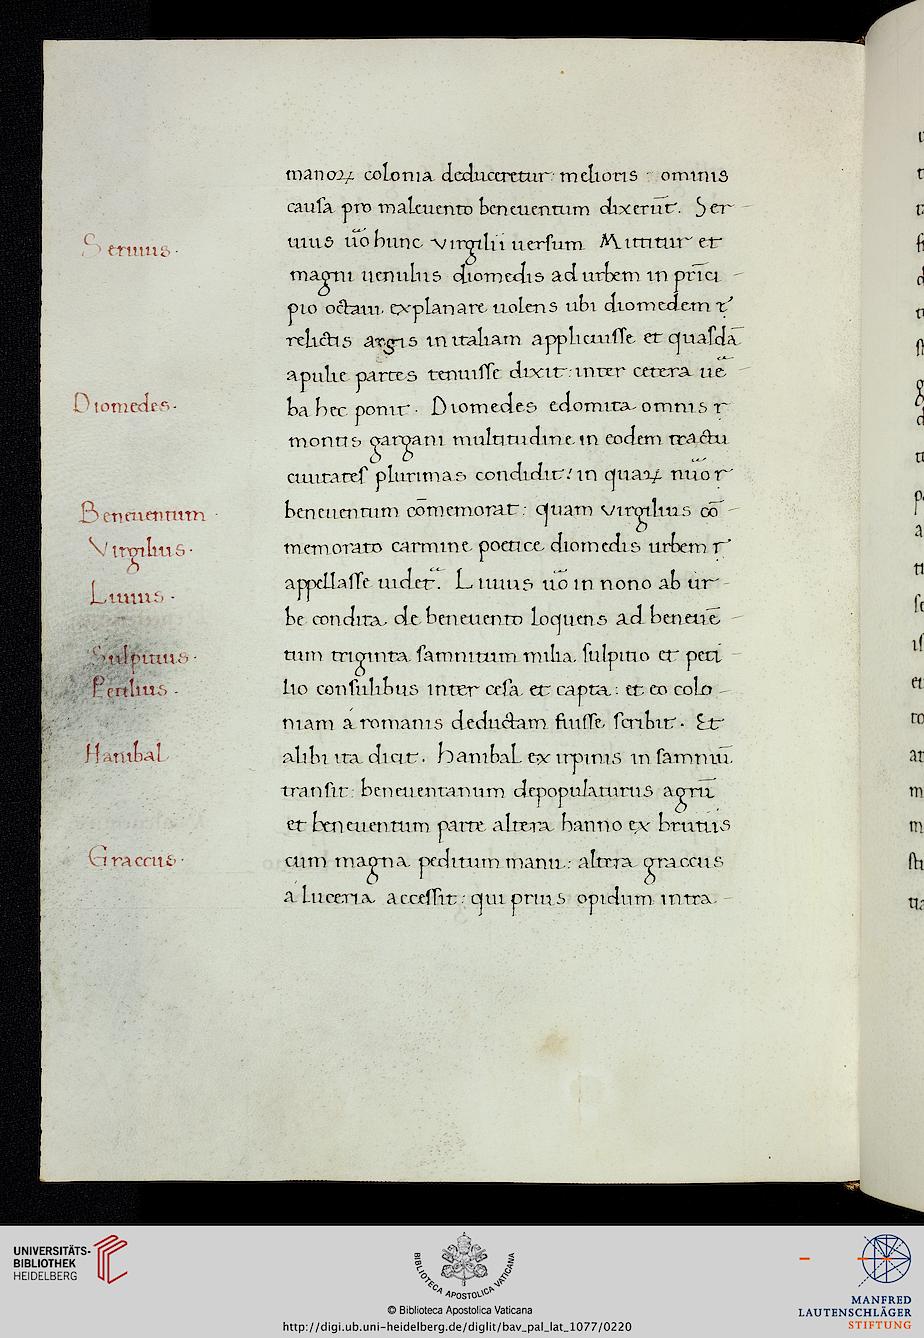 manoꝝ colonia deduceretur: melioris ominis
causa pro maleuento beneuentum dixerūt. Ser
Seruius.
uius u̅o hunc virgilii uersum Mittitur et
magni uenulus diomedis ad urbem in prīci
pio octaui. explanare uolens ubi diomedem
relictis argis in italiam applicuisse et quasdā
apulie partes tenuisse dixit: inter cetera ue̅
Diomedes.
ba hec ponit. Diomedes edomita omnis
montis gargani multitudine in eodem tractu
ciuitates plurimas condidit: in quaꝝ nu̅o
Beneuentum
beneuentum cōmemorat: quam virgilius cō
Virgilius.
memorato carmine poetice diomedis urbem
appellasse uidet̅. Liuius u̅o in nono ab ur
Liuius.
be condita. de beneuento loquens ad beneuē
Sulpitius.
tum triginta samnitum milia sulpitio et peti
Petilius.
lio consulibus inter cesa et capta: et eo colo
niam á romanis deductam fuisse scribit. Et
Hanibal
alibi ita dicit. hanibal ex irpinis in samniū
transit: beneuentanum depopulaturus agrū
et beneuentum parte altera hanno ex brutiis
Graccus.
cum magna peditum manu: altera graccus
á luceria accessit: qui prius opidum intra
UNIVERSITÄTS-
BIBLIOTHEK
HEIDELBERG
BIBLIOTECA APOSTOLICA VATICANA
© Biblioteca Apostolica Vaticana
http://digi.ub.uni-heidelberg.de/diglit/bav_pal_lat_1077/0220
MANFRED
LAUTENSCHLÄGER
STIFTUNG